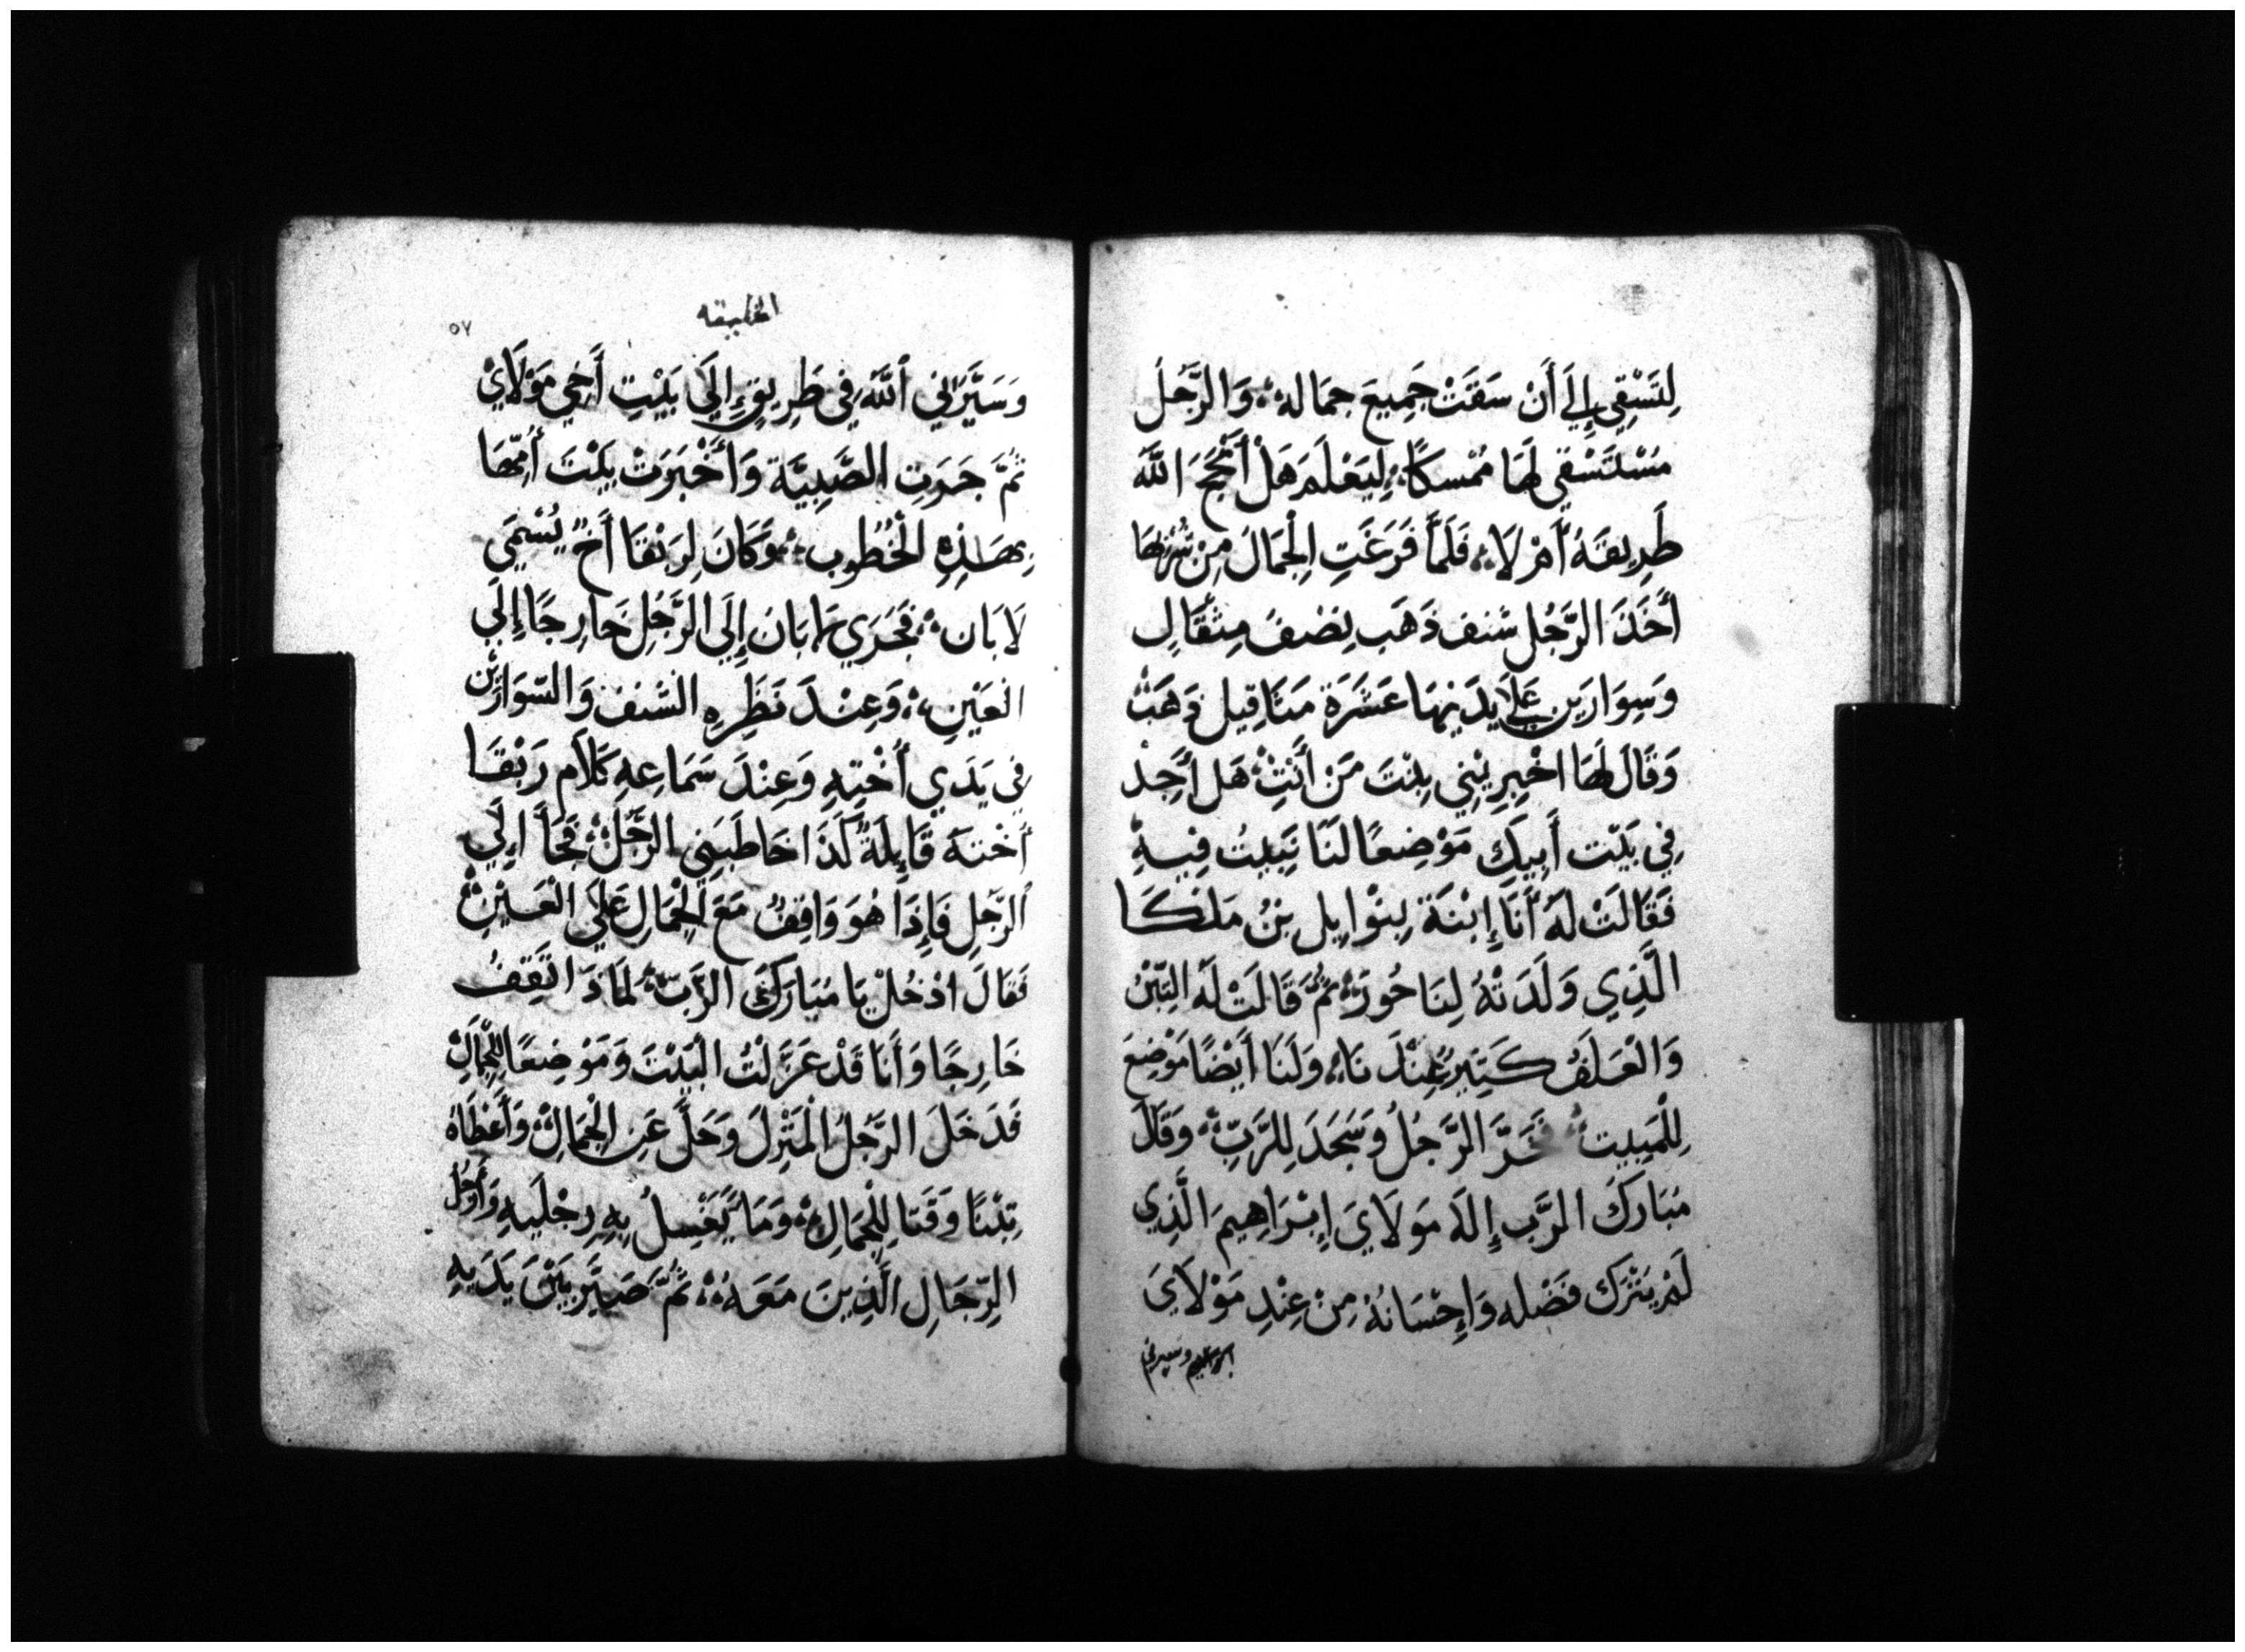 لِتَسْقِي إِلَي أَنْ سَقَتْ جَمِيعَ جمَاله وَالرَّجُلَ
مُسْتَسْقِي لَهَا مُمْسكًا لِيَعْلَم هَلْ أَنْجَحَ اللَّه
طَرِيقَهُ أَمْ لَا فَلَمَّا فَرَغَتِ الْجِمَالُ مِنْ شُرْبِهَا
أَخَذَ الرَّجُل شنف ذَهَب نِصْفُ مِثْقَالٍ
وَسِوَارَين عَلَي يَدَيْهَا عَشَرَة مَثَاقِيل ذَهَبْ
وَقَالَ لَهَا اخْبِرِينِي بِنْتَ مَنْ أَنْتِ هَل أَجِدْ
فِي بَيْت أَبِيكِ مَوْضِعًا لنَا نَبِيتُ فِيهِ
فَقَالَتْ لَهُ أَنَا إِبْنَة بِتْوَايِل بِنْ مَلْكَا
الَّذِي وَلَدَتْهُ لِنَاحُورَ ثُمَّ قَالَتْ لَه التِّبْنُ
وَالْعَلَفُ كَثِيرُ عِنْدَنَا وَلَنَا أَيْضًا مَوْضِعَ
لِلْمَبِيت فَخَرَّ الرَّجُلُ وَسَجَدَ لِلرَّبِّ وَقَالَ
مُبَارَكُ الرَّب إِلَهُ مَولَايَ إِبْرَاهِيمَ الَّذِي
لَمْ يَتْرُك فَضْله وَإِحْسَانُهُ مِنْ عِنْدِ مَوْلَايَ
ابراهيم وسيرني
الخليقه
٥٧
وَسَيَّرَنِي اللَّه فِي طَرِيقٍ إِلَي بَيْتِ أَخِي مَوْلَايْ
ثُمَّ جَرَتِ الصَّبِيَّة وَأَخْبَرَتْ بَيْتَ أُمِّهَا
بِهَذِهِ الْخُطُوب وَكَانَ لِرَبْقَا أَخٌ يُسْمَي
لَابَان فَجَرَي لابَان إِلَي الرَّجُلِ خَارِجًا إِلَي
الْعَيْنِ وَعِنْدَ نَظَرِهِ الشنف وَالسّوَارَيْن
فِي يَدَي أُخْتِهِ وَعِنْدَ سَمَاعِهِ كَلَام رَبْقَا
أُخْتهُ قَايِلَةً كَذَا خَاطَبَنِي الرَّجُلْ فَجَأَ الِي
الرَّجُلِ فَإِذَا هُوَ وَاقِفٌ مَعَ الْجِمَالِ عَلَي الْعَيْنِ
فَقَالَ ادْخُلْ يَا مُبَارَكَ الرَّبّ لمَاذَا تَقِفُ
خَارِجًا وَأَنَا قَدْ عَزَلْتُ الْبَيْتَ وَمَوْضِعًا لِلْجِمَالْ
فَدَخَلَ الرَّجُلُ الْمَنْزِلَ وَحَلَّ عَنِ الْجِمَالْ وَأَعْطَاهُ
تِبْنًا وَقَتَا لِلْجِمَالِ وَمَا يَغْسِلُ بِهِ رِجْلَيهِ وَأَرْجُلَ
الرِّجَالِ الَّذِينَ مَعَهُ ثُمَّ صَيَّر بَيْنَ يَدَيهِ